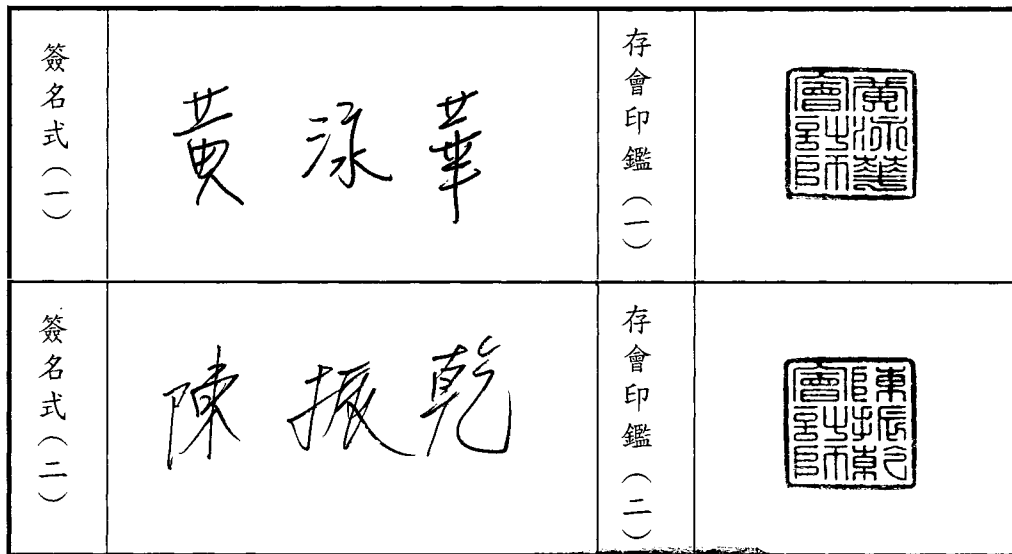 簽名式（一）
黃泳華
存會印鑑（一）
黃泳華會計師
簽名式（二）
陳振乾
存會印鑑（二）
陳振乾會計師